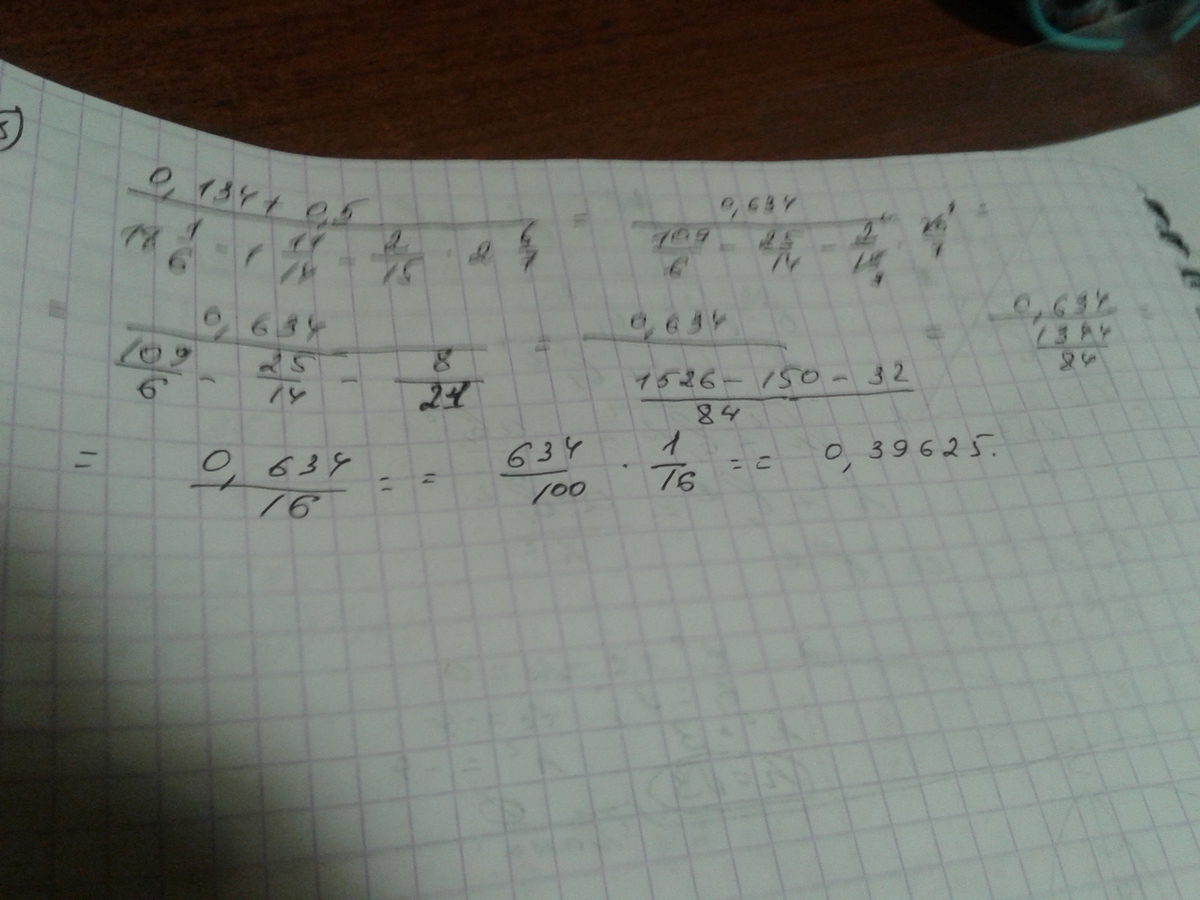 5)
(0,134 + 0,5)/(18 1/6 - 1 11/14 - 2/15 · 2 6/7) = 0,634/(109/6 - 25/14 - 2/15 · 20/7) =
= 0,634/(109/6 - 25/14 - 8/21) = 0,634/((1526 - 150 - 32)/84) = 0,634/(1344/84) =
= 0,634/16 = = 634/100 · 1/16 = = 0,39625.